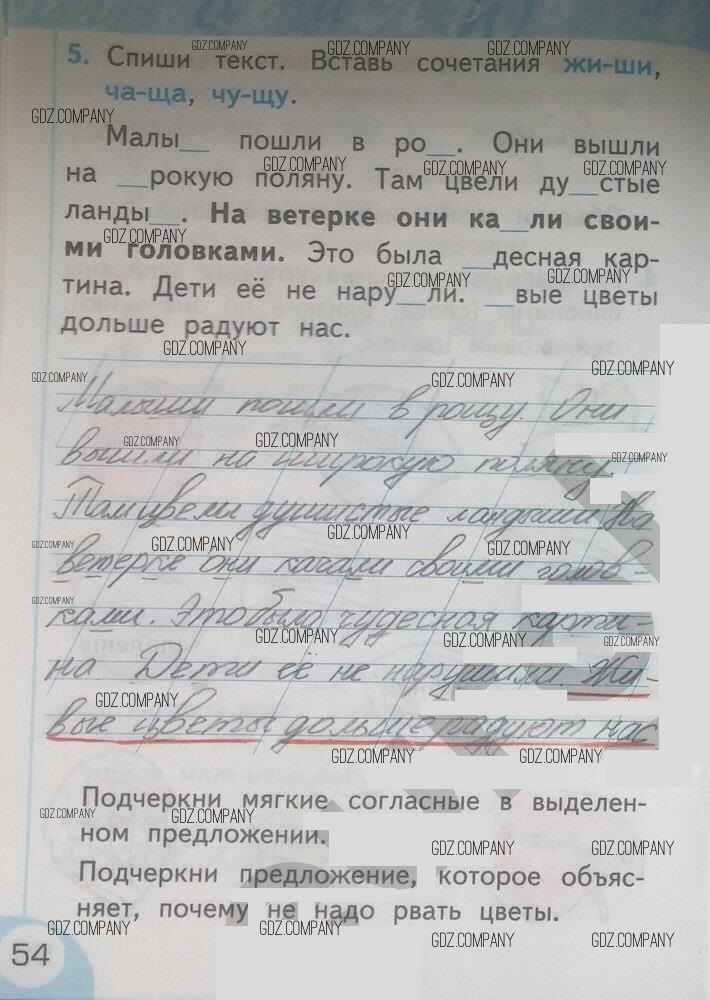 5. Спиши текст. Вставь сочетания жи-ши,
ча-ща, чу-щу.
Малы__ пошли в ро__. Они вышли
на __рокую поляну. Там цвели ду__стые
ланды__. На ветерке они ка__ли свои-
ми головками. Это была __десная кар-
тина. Дети её не нару__ли. __вые цветы
дольше радуют нас.
Малыши пошли в рощу. Они
вышли на широкую поляну.
Там цвели душистые ландыши На
ветерке они качали своими голов-
ками. Это была чудесная карти-
на Дети её не нарушили. Жи-
вые цветы дольше радуют нас
Подчеркни мягкие согласные в выделен-
ном предложении.
Подчеркни предложение, которое объяс-
няет, почему не надо рвать цветы.
54
GDZ.COMPANY